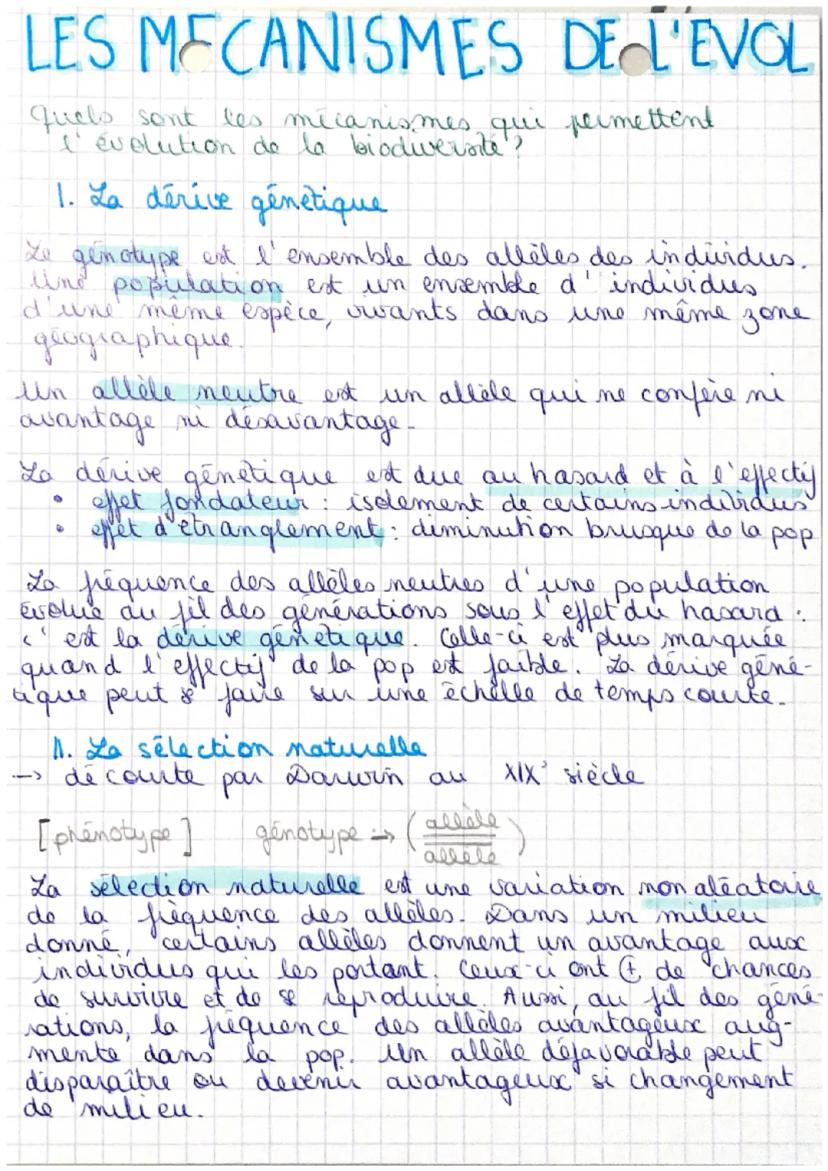 LES MECANISMES DE L'EVOL
Quels sont les mécanismes qui permettent
l'évolution de la biodiversité ?
1. La dérive génétique
Le génotype est l'ensemble des allèles des individus.
Une population est un ensemble d'individus
d'une même espèce, vivants dans une même zone
géographique.
Un allèle neutre est un allèle qui ne confère ni
avantage ni désavantage.
La dérive génétique est due au hasard et à l'effectif
• effet fondateur : isolement de certains individus
• effet d'étranglement : diminution brusque de la pop
La fréquence des allèles neutres d'une population
évolue au fil des générations sous l'effet du hasard :
c'est la dérive génétique. Celle-ci est plus marquée
quand l'effectif de la pop est faible. La dérive géné-
tique peut se faire sur une échelle de temps courte.
II. La sélection naturelle
-> découverte par Darwin au XIX° siècle
[phénotype] génotype -> (allèle
allèle)
La sélection naturelle est une variation non aléatoire
de la fréquence des allèles. Dans un milieu
donné, certains allèles donnent un avantage aux
individus qui les portant. Ceux-ci ont ⊕ de chances
de survivre et de se reproduire. Aussi, au fil des géné-
rations, la fréquence des allèles avantageux aug-
mente dans la pop. Un allèle défavorable peut
disparaître ou devenir avantageux si changement
de milieu.